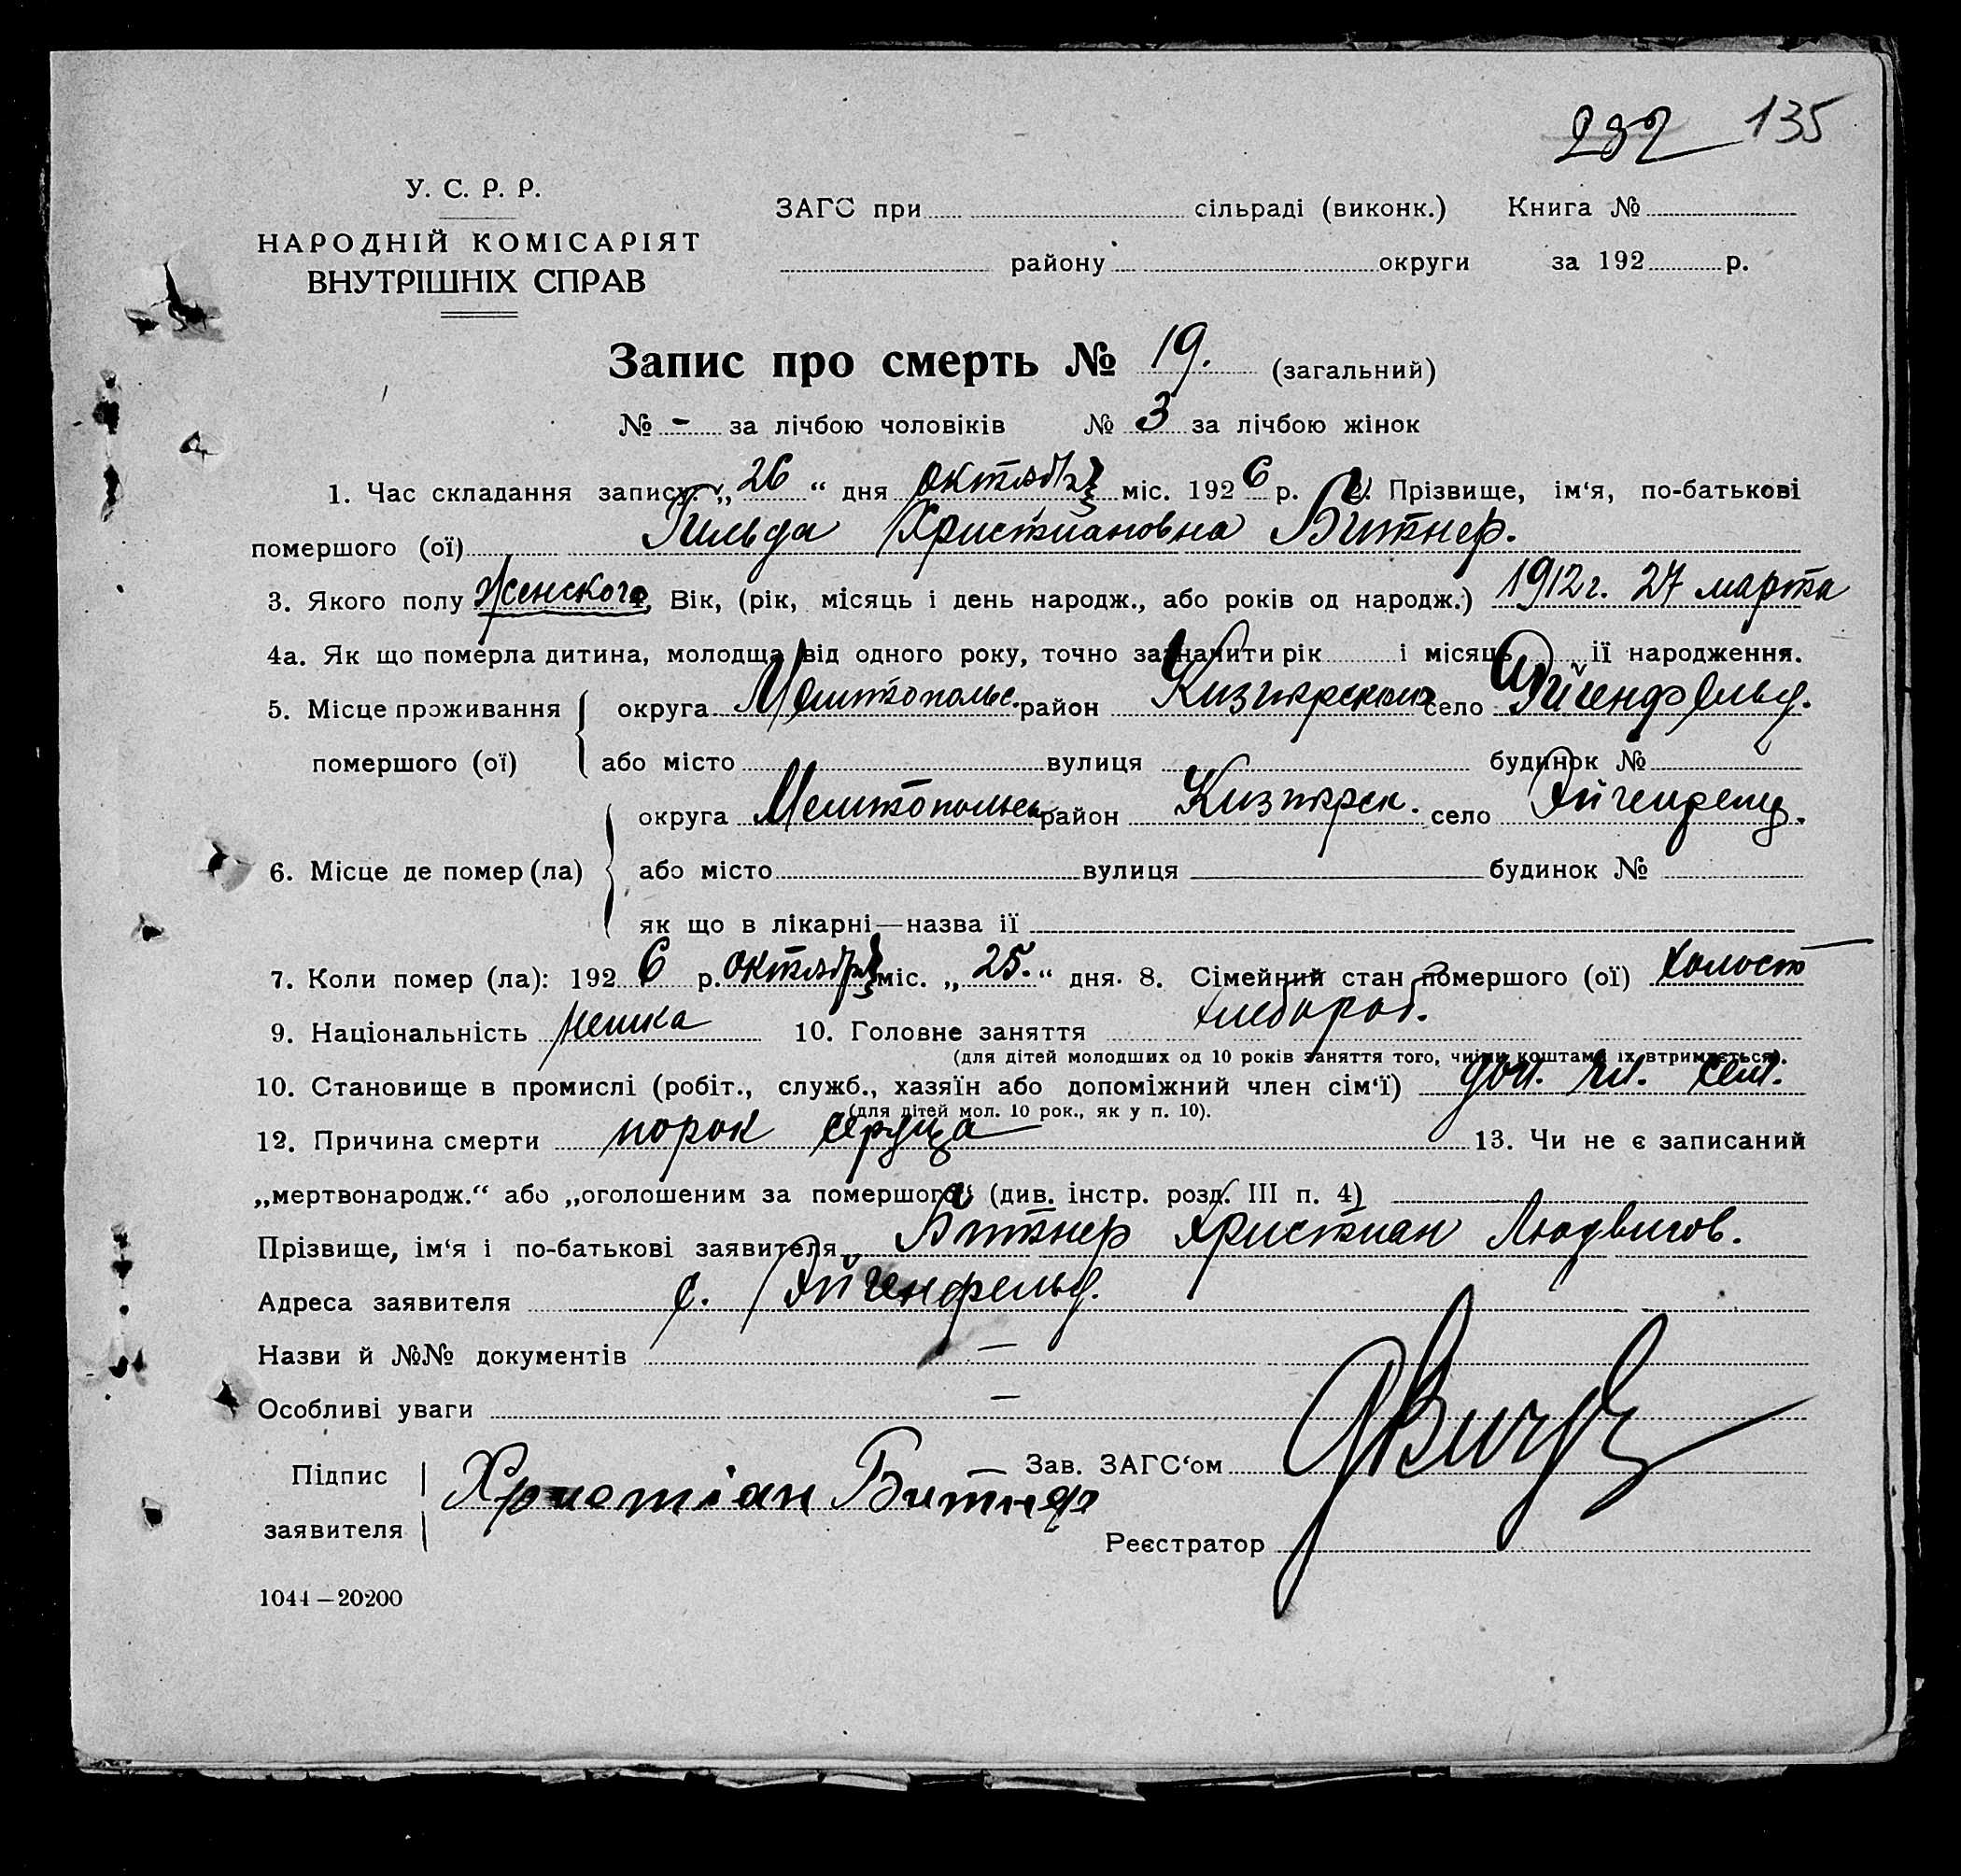 232 135
У. С. Р. Р.
НАРОДНІЙ КОМІСАРІЯТ
ВНУТРІШНІХ СПРАВ
ЗАГС при сільраді (виконк.) Книга №
району округи за 192 р.
Запис про смерть № 19. (загальний)
№ - за лічбою чоловіків № 3 за лічбою жінок
1. Час складання запису „26“ дня октября міс. 1926 р. 2. Прізвище, ім‘я, по-батькові
помершого (ої) Гильда Христиановна Битнер.
3. Якого полу Женского 4. Вік, (рік, місяць і день народж., або років од народж.) 1912 г. 27 марта
4а. Як що померла дитина, молодща від одного року, точно зазначити рік і місяць ії народження.
5. Місце проживання округа район село Эйгенфельд.
помершого (ої) або місто вулиця будинок №
округа район село
6. Місце де помер (ла) або місто вулиця будинок №
як що в лікарні—назва ії
7. Коли помер (ла): 1926 р. октября міс. „25.“ дня. 8. Сімейний стан помершого (ої) холост
9. Національність немка 10. Головне заняття хлебороб.
(для дітей молодших од 10 років заняття того, чиїми коштами їх втримується).
10. Становище в промислі (робіт., служб., хазяїн або допоміжний член сім‘ї) доп. чл. сем.
(для дітей мол. 10 рок., як у п. 10).
12. Причина смерти порок сердца 13. Чи не є записаний
„мертвонародж.“ або „оголошеним за помершого“ (див. інстр. розд. III п. 4)
Прізвище, ім‘я і по-батькові заявителя Битнер Христиан Людвигов.
Адреса заявителя с. Эйгенфельд.
Назви й №№ документів —
Особливі уваги —
Підпис Христіан Битнер Зав. ЗАГС‘ом
заявителя
Реєстратор
1044—20200